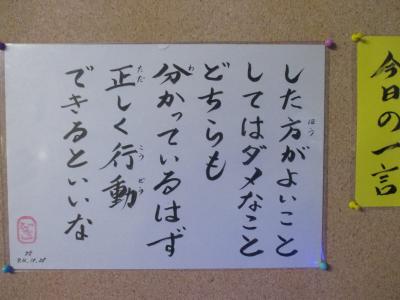 今日の一言
した方がよいこと
してはダメなこと
どちらも
分かっているはず
正しく行動
できるといいな